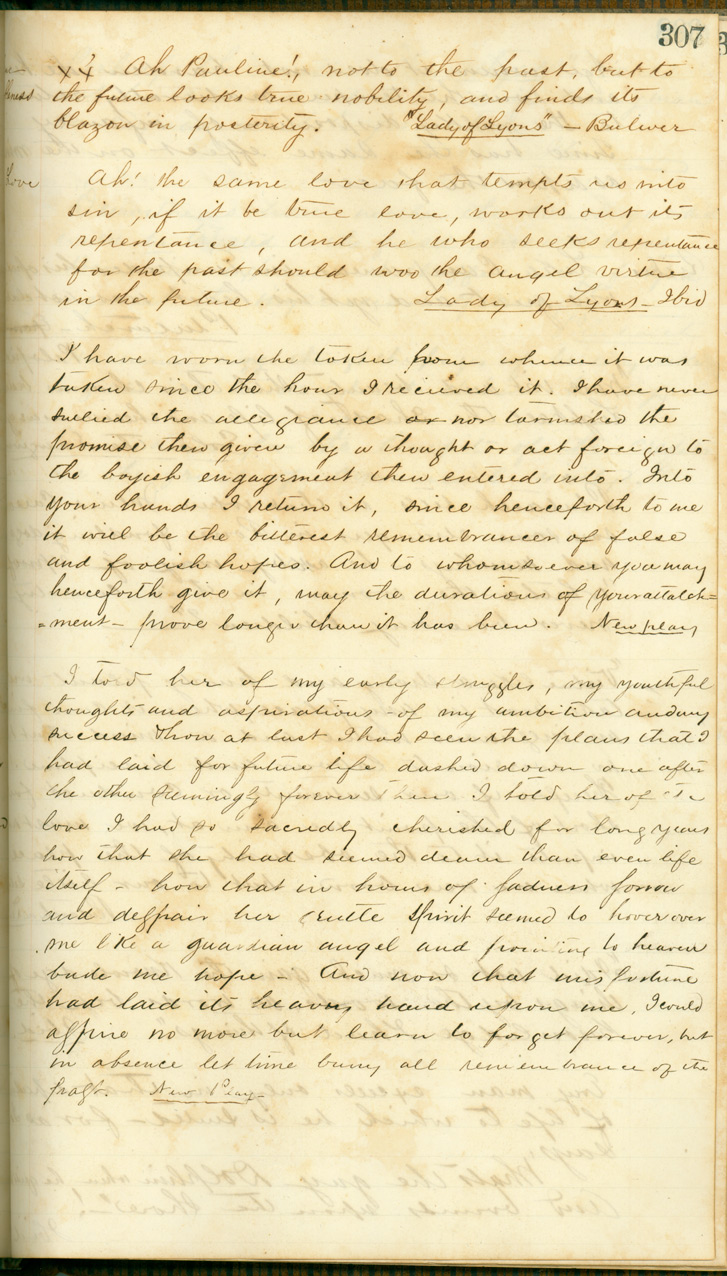 307
Ah Pauline!, not to the past, but to
the future looks true nobility, and finds its
blazon in posterity. "Lady of Lyons" – Bulwer
Love
Ah! the same love that tempts us into
sin, if it be true love, works out its
repentance, and he who seeks repentance
for the past should woo the angel virtue
in the future. Lady of Lyons – Ibid
I have worn the token from whence it was
taken since the hour I recieved it. I have never
sullied the allegiance or nor tarnished the
promise then given by a thought or act foreign to
the boyish engagement then entered into. Into
your hands I return it, since henceforth to me
it will be the bitterest remembrancer of false
and foolish hopes. And to whomsoever you may
henceforth give it, may the durations of your attatch=
=ment – prove longer than it has been. New play
I told her of my early struggles, my youthful
thoughts and aspirations – of my ambition and my
success How at last I had seen the plans that I
had laid for future life dashed down one after
the other seemingly forever Then I told her of the
love I had so sacredly cherished for long years
how that she had seemed dearer than even life
itself – how that in hours of sadness sorrow
and despair her gentle spirit seemed to hover over
me like a guardian angel and pointing to heaven
bade me hope – And now that misfortune
had laid its heavy hand upon me, I could
aspire no more but learn to forget forever, but
in absence let time bury all remembrance of the
past. New Play